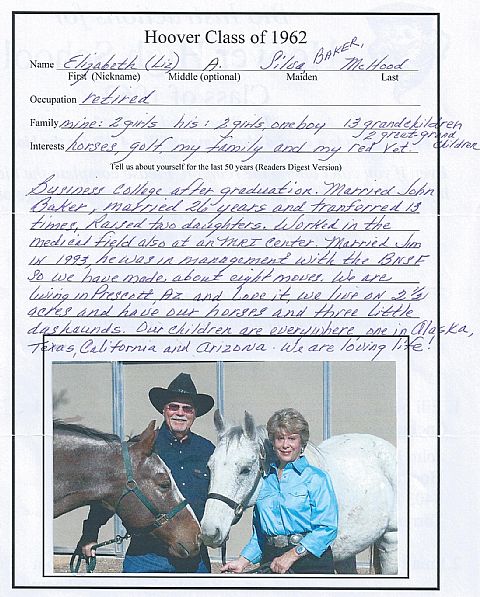 Hoover Class of 1962
Name Elizabeth (Liz) A. Silva BAKER, McHood
First (Nickname) Middle (optional) Maiden Last
Occupation retired
Family mine: 2 girls his: 2 girls, one boy 13 grandchildren
2 great grand children
Interests horses, golf, my family and my red Vet.
Tell us about yourself for the last 50 years (Readers Digest Version)
Business College after graduation. Married John
Baker, married 26 years and tranferred 13
times, Raised two daughters. Worked in the
medical field also at an MRI center. Married Jim
in 1993, he was in management with the BNSF
so we have made about eight moves. We are
living in Prescott, Az and love it, we live on 2 1/2
acres and have our horses and three little
dashaunds. Our children are everywhere one in Alaska,
Texas, California and Arizona. We are loving life!